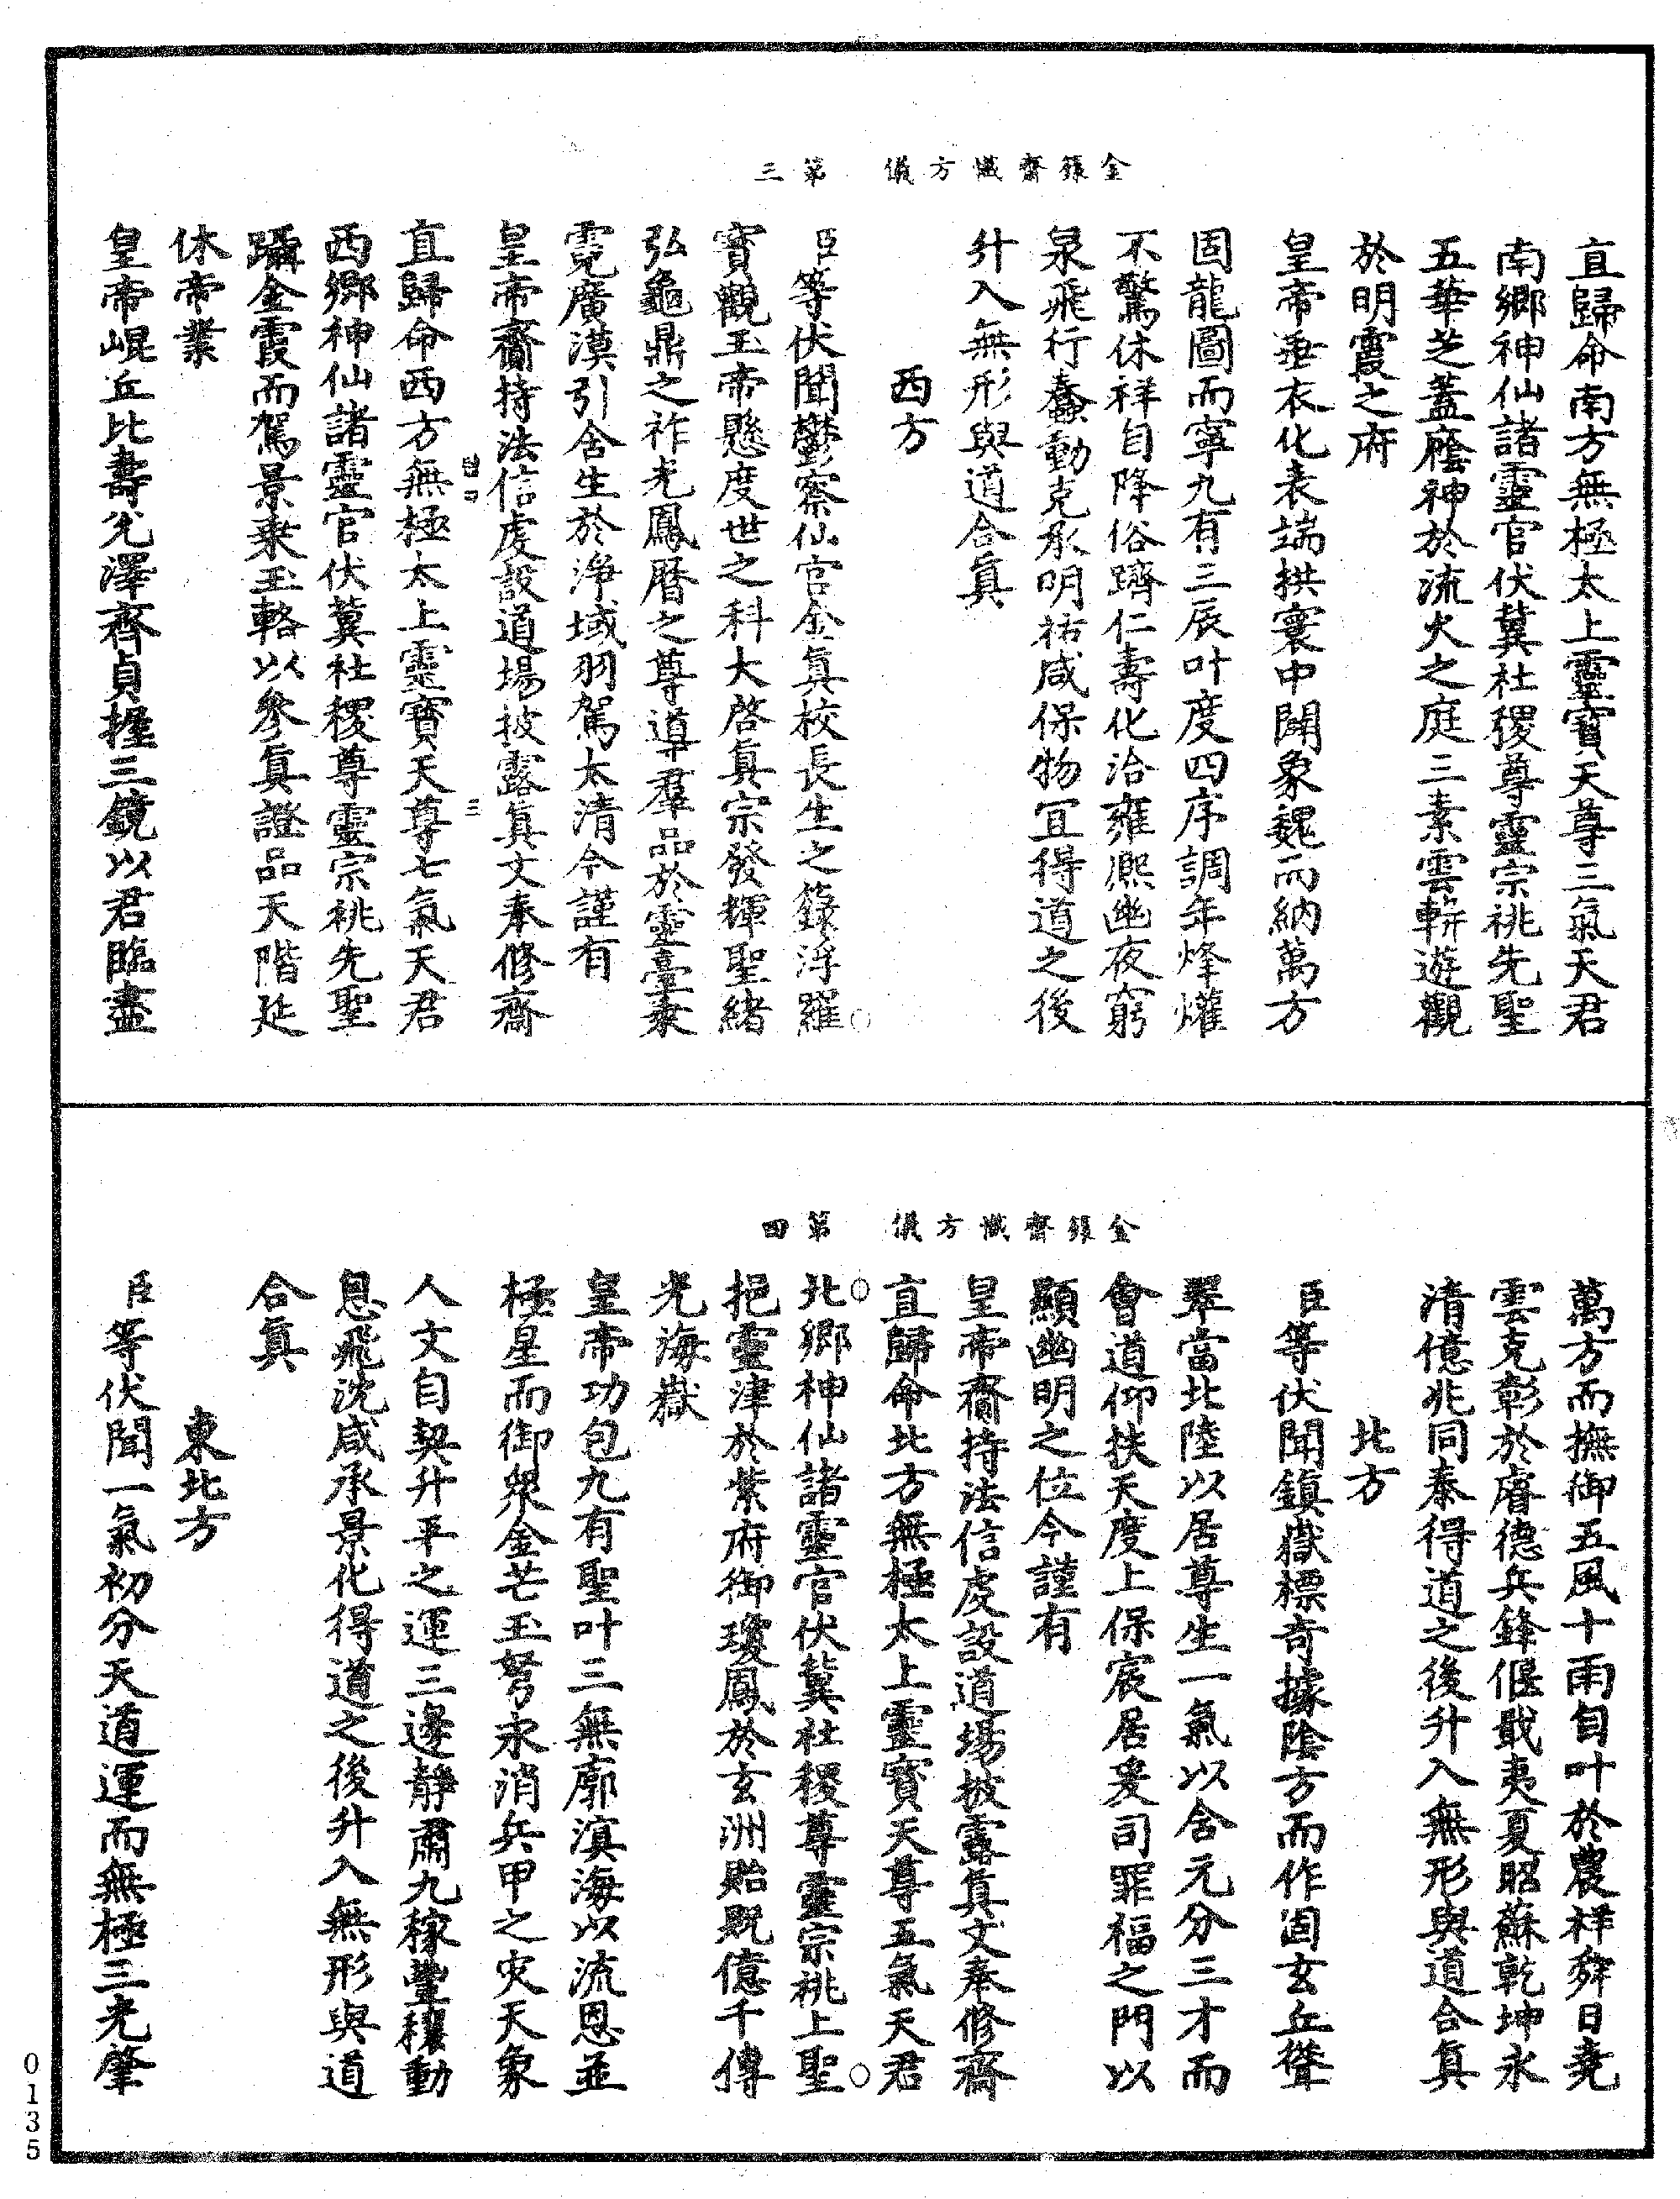 金籙齋懺方儀　第三
直歸命南方無極太上靈寶天尊三氣天君
南鄉神仙諸靈官伏冀社稷尊靈宗祧先聖
五華芝蓋廕神於流火之庭三素雲軿遊觀
於明霞之府
皇帝垂衣化表端拱寰中開象魏而納萬方
固龍圖而寧九有三辰叶度四序調年烽爟
不驚休祥自降俗躋仁壽化洽雍熙幽夜窮
泉飛行蠢動克承明祐咸保物冝得道之後
升入無形與道合真
西方
臣等伏聞鬱察仙宮金真校長生之籙浮羅
寳觀玉帝懸度世之科大啓真宗發輝聖緒
弘龜鼎之祚光鳳曆之尊導羣品於靈臺秉
霓廣漠引舍生於淨域羽駕太清今謹有
皇帝齋持法信虔設道場披露真文奉修齋
直歸命西方無極太上靈寳天尊七氣天君
三
西鄉神仙諸靈官伏冀社稷尊靈宗祧先聖
躡金霞而駕景乗玉輅以參真證品天階延
休帝業
皇帝崐丘比壽光澤齊貞握三鏡以君臨盡
金籙齋懺方儀　第四
萬方而撫御五風十雨自叶於農祥舜日堯
雲克彰於睿德兵鋒偃戢夷夏昭蘇乾坤永
清億兆同泰得道之後升入無形與道合真
北方
臣等伏聞鎮嶽標奇據陰方而作固玄丘聳
翠當北陸以居尊生一氣以含元分三才而
會道仰扶天度上保宸居爰司罪福之門以
顯幽明之位今謹有
皇帝齋持法信虔設道場披露真文奉修齋
直歸命北方無極太上靈寳天尊五氣天君
北鄉神仙諸靈官伏冀社稷尊靈宗祧上聖
挹靈津於紫府御瓊鳳於玄洲貽貺億千傳
光海嶽
皇帝功包九有聖叶三無廓溟海以流恩並
極星而御衆金芒玉弩永消兵甲之灾天象
人文自契升平之運三邊靜肅九稼豐穰動
息飛沈咸承景化得道之後升入無形與道
合真
東北方
臣等伏聞一氣初分天道運而無極三光肇
0135